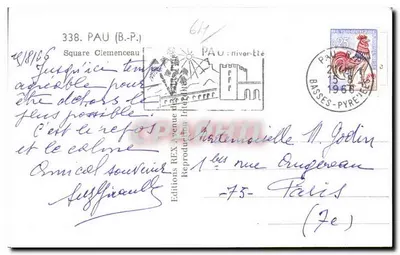 338. PAU (B.-P.)
Square Clemenceau
15/8/66
Jusqu'ici temps
agréable pour
être dehors le
plus possible.
C'est le repos
et le calme
Amical souvenir
Suz Girault
Editions REX
Reproduction Interdite
611
PAU hiver-Eté
PAU
15 - 8
1966
BASSES-PYRENEES
Mademoiselle N. Godin
1 bis rue Augereau
-75- Paris
(7e)